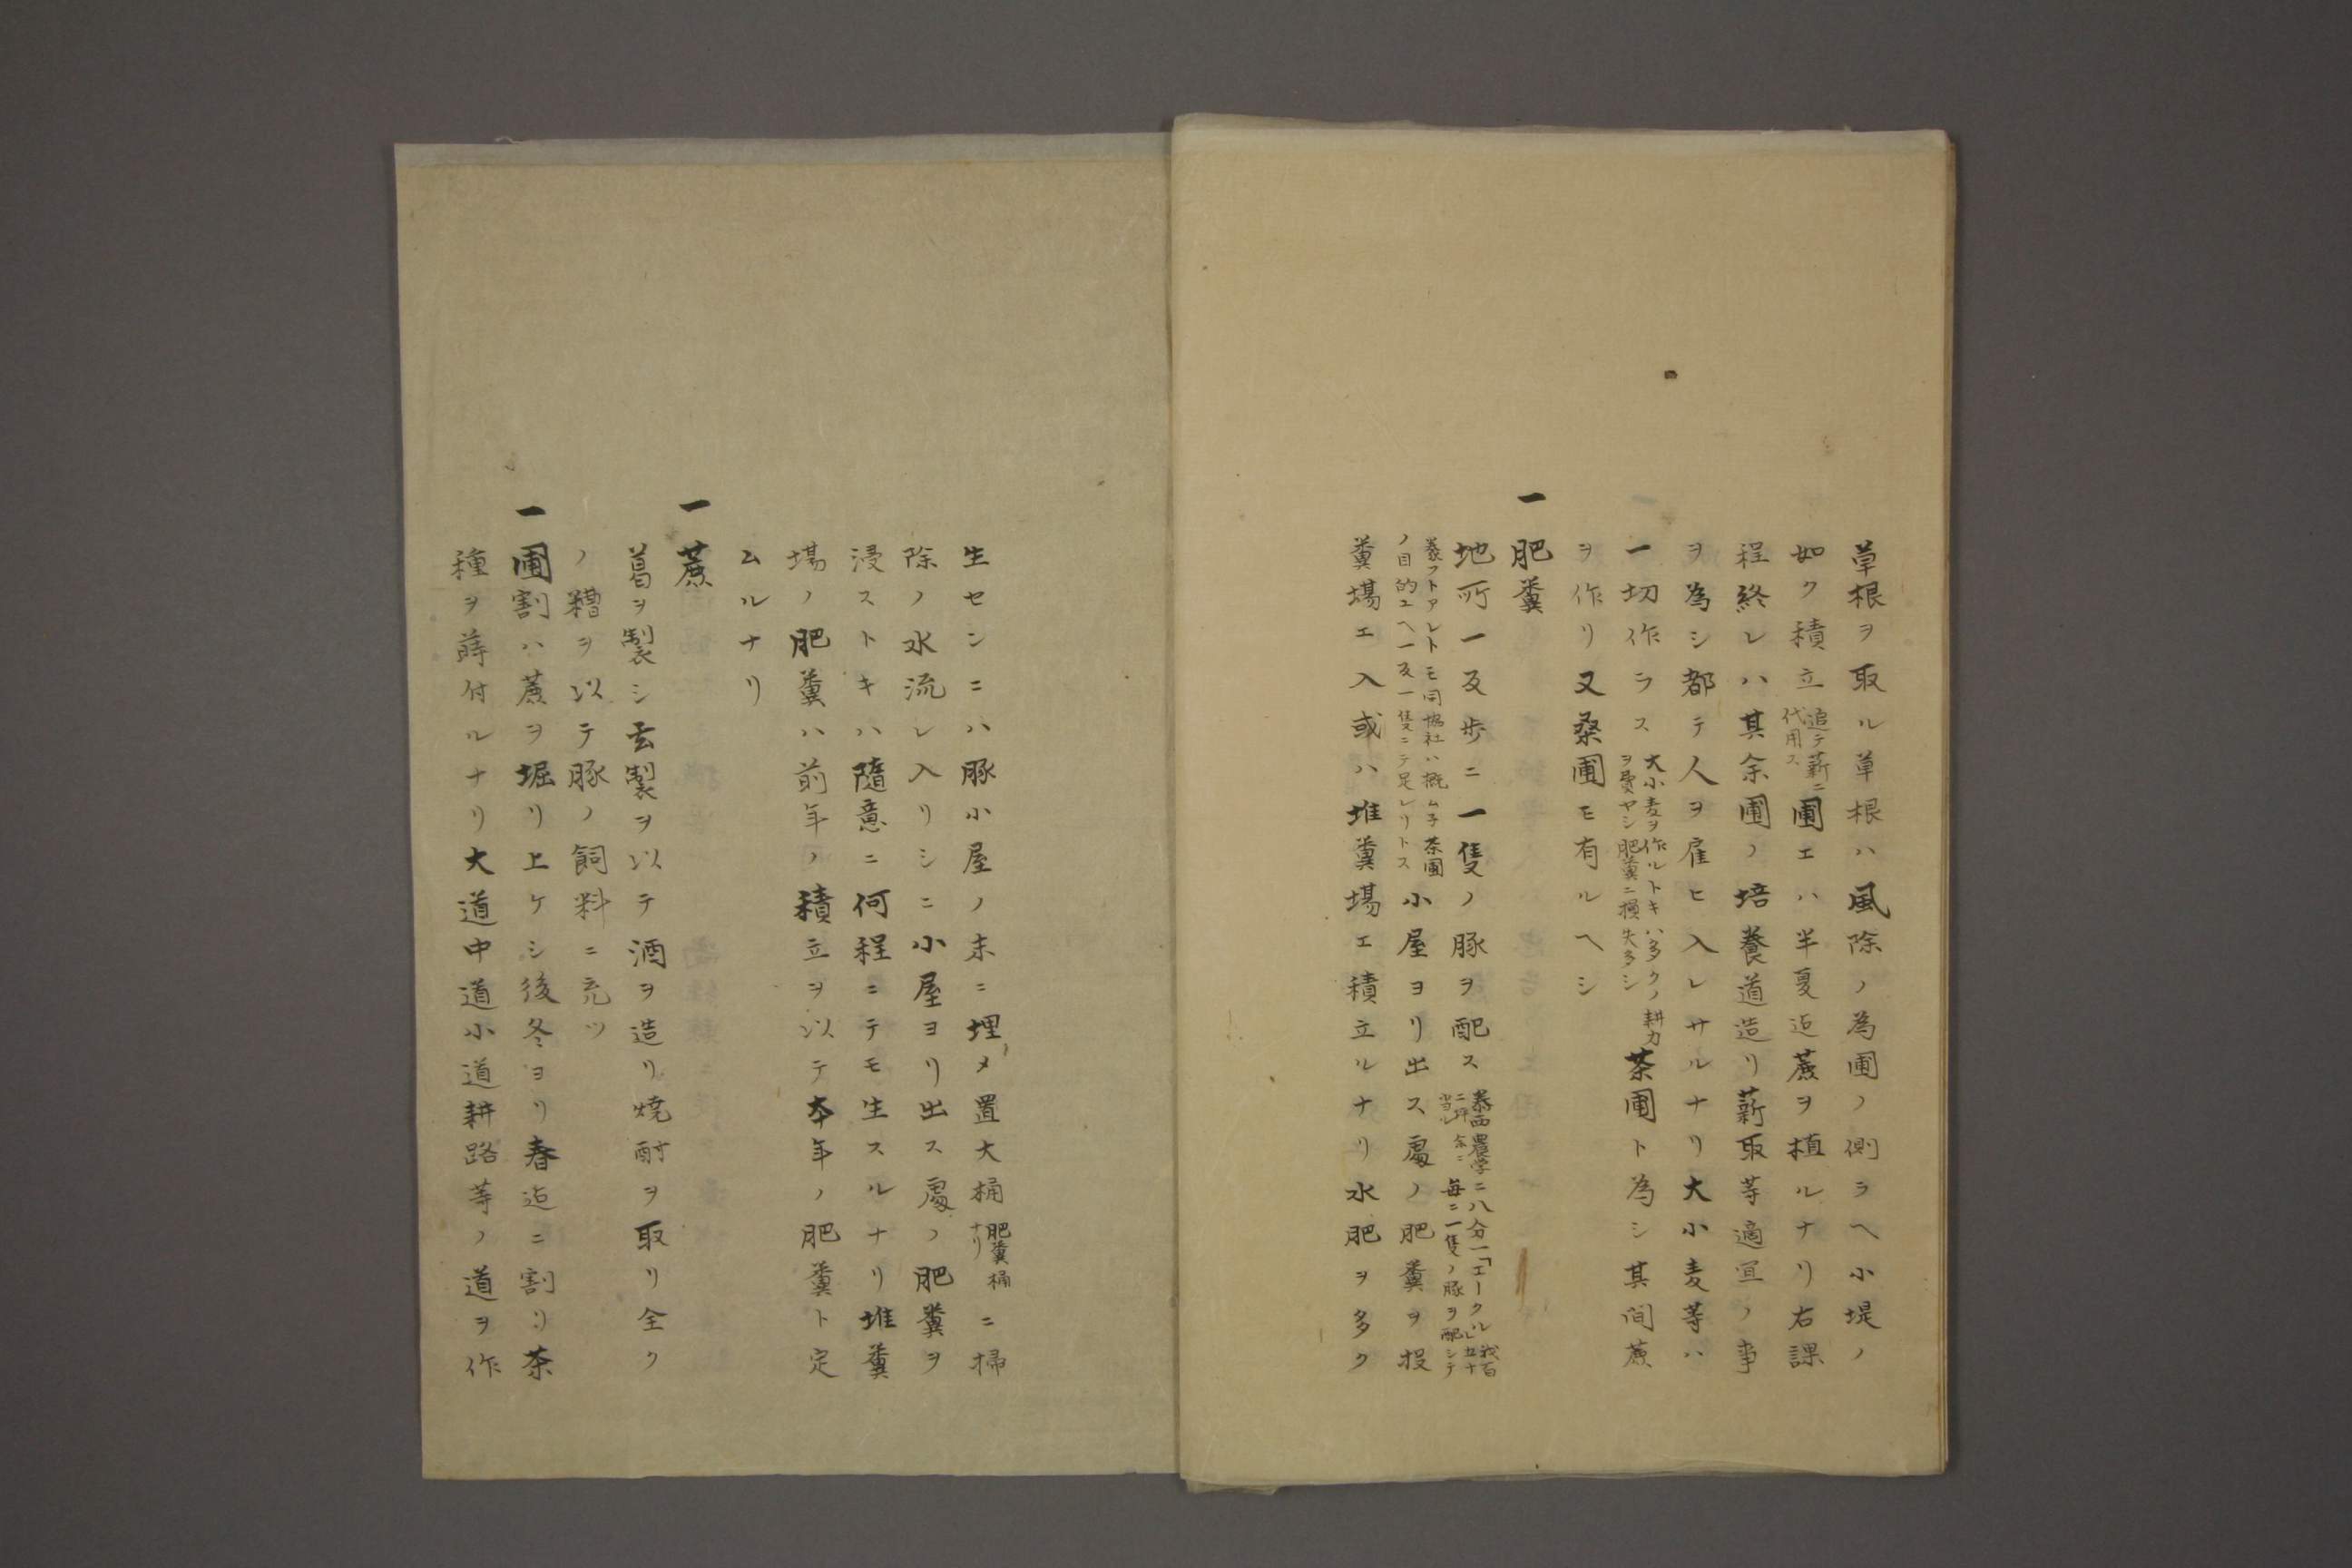 草根ヲ取ル草根ハ風除ノ為圃ノ側ラヘ小堤ノ
如ク積立追テ薪ニ代用ス圃エハ半夏迠蔗ヲ植ルナリ右課
程終レハ其余圃ノ培養道造リ薪取等適宜ノ事
ヲ為シ都テ人ヲ雇ヒ入レサルナリ大小麦等ハ
一切作ラス大小麦ヲ作ルトキハ多クノ耕力ヲ費ヤシ肥糞ニ損失多シ茶圃ト為シ其间蔗
ヲ作リ又桑圃モ有ルヘシ
一肥糞
地所一反歩ニ一隻ノ豚ヲ配ス泰西農学ニ八分一「エークル」我百五十二坪余ニ当ル毎ニ一隻ノ豚ヲ配シテ
養フトアレトモ同協社ハ概ム子茶圃ノ目的エヘ一反一隻ニテ足レリトス小屋ヨリ出ス處ノ肥糞ヲ投
糞場エ入或ハ堆糞場エ積立ルナリ水肥ヲ多ク
生センニハ豚小屋ノ末ニ埋メ置大桶肥糞桶ナリニ掃
除ノ水流レ入リシニ小屋ヨリ出ス處ノ肥糞ヲ
浸ストキハ隨意ニ何程ニテモ生スルナリ堆糞
場ノ肥糞ハ前年ノ積立ヲ以テ本年ノ肥糞ト定
ムルナリ
一蔗
葛ヲ製シ玄製ヲ以テ酒ヲ造リ焼酎ヲ取リ全ク
ノ糟ヲ以テ豚ノ飼料ニ充ツ
一圃割ハ蔗ヲ堀リ上ケシ後冬ヨリ春迠ニ割リ茶
種ヲ蒔付ルナリ大道中道小道耕路等ノ道ヲ作